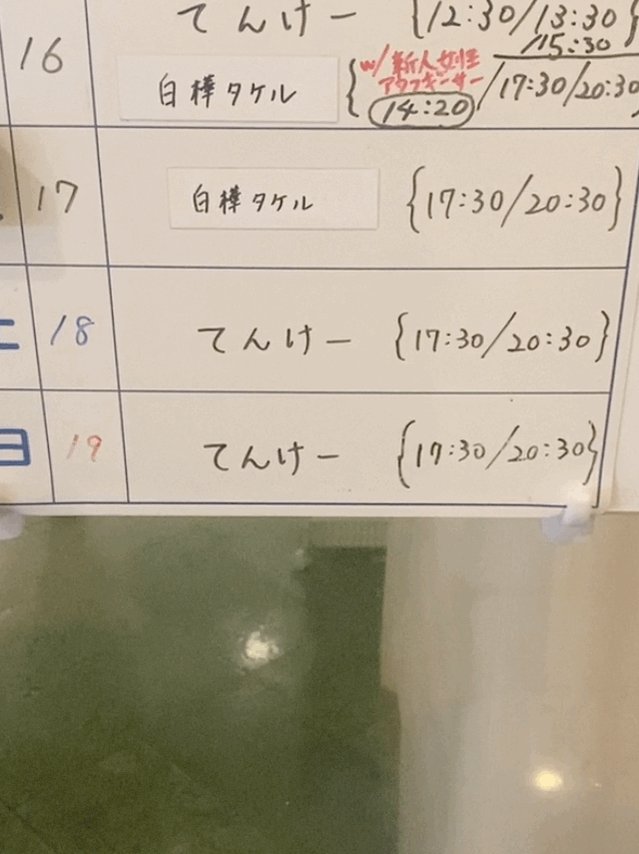 てんけー {12:30/13:30
/15:30}
16
w/新人女性
アタフキーサー
白樺タケル {14:20/17:30/20:30
17 白樺タケル {17:30/20:30}
18 てんけー {17:30/20:30}
日 19 てんけー {17:30/20:30}